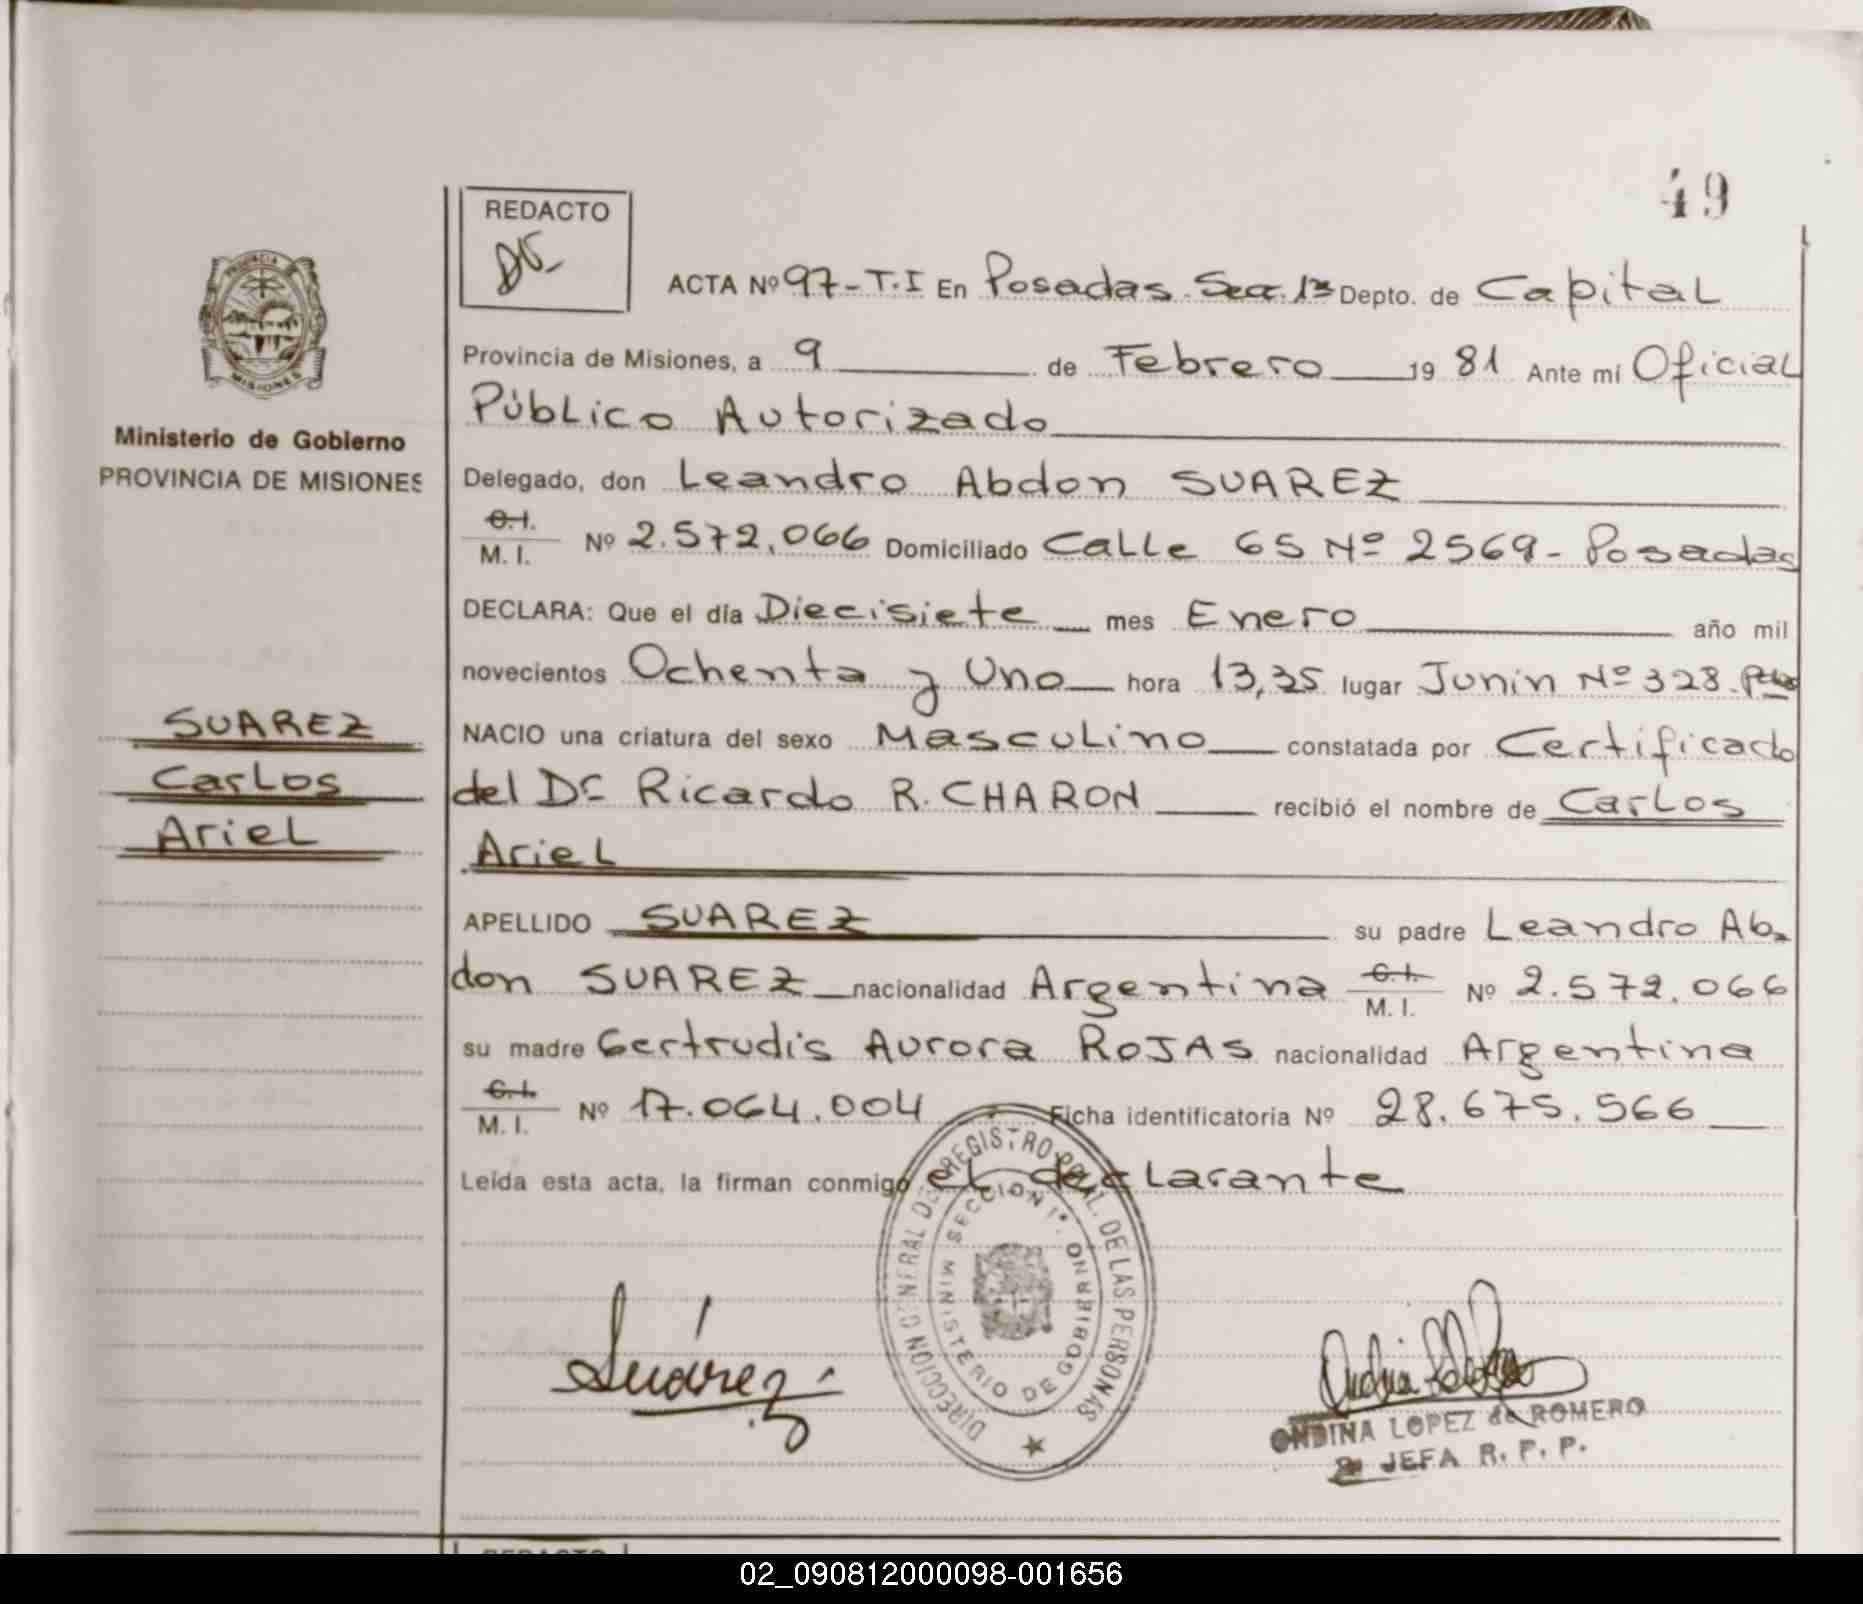 49
REDACTO
ACTA Nº 97-T.I En Posadas. Secc. 1ª Depto. de Capital
PROVINCIA DE
MISIONES
Provincia de Misiones, a 9 de Febrero 19 81 Ante mí Oficial
Público Autorizado
Ministerio de Gobierno
PROVINCIA DE MISIONES
Delegado, don Leandro Abdon SUAREZ
C.I.
M. I. Nº 2.572.066 Domiciliado Calle 65 Nº 2569- Posadas
DECLARA: Que el día Diecisiete mes Enero año mil
novecientos Ochenta y Uno hora 13,35 lugar Junin Nº 328.
SUAREZ
Carlos
Ariel
NACIO una criatura del sexo Masculino constatada por Certificado
del Dr Ricardo R. CHARON recibió el nombre de Carlos
Ariel
APELLIDO SUAREZ su padre Leandro Ab-
don SUAREZ nacionalidad Argentina C.I. M. I. Nº 2.572.066
su madre Gertrudis Aurora ROJAS nacionalidad Argentina
C.I.
M. I. Nº 17.064.004 Ficha identificatoria Nº 28.675.566
Leída esta acta, la firman conmigo el declarante
DIRECCION GENERAL DEL REGISTRO PCIAL. DE LAS PERSONAS
SECCION 1ª.
MINISTERIO DE GOBIERNO
Suárez
ONDINA LOPEZ de ROMERO
JEFA R. P. P.
REDACTO
02_090812000098-001656